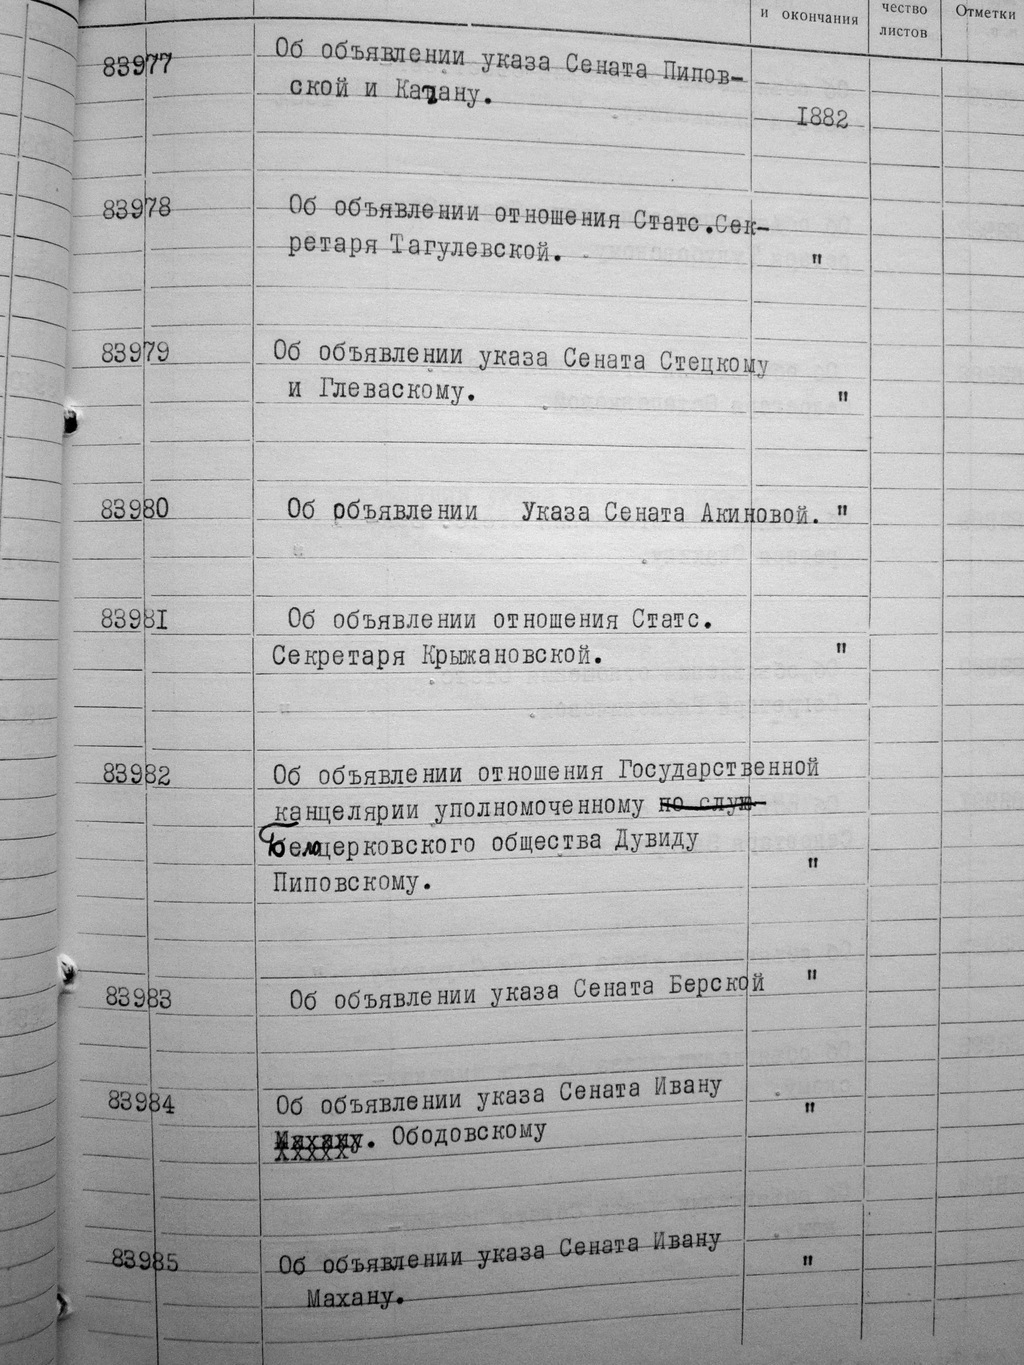 и окончания
чество
листов
Отметки
83977
Об объявлении указа Сената Пипов-
ской и Кацану.
1882
83978
Об объявлении отношения Статс.Сек-
ретаря Тагулевской.
"
83979
Об объявлении указа Сената Стецкому
и Глеваскому.
"
83980
Об объявлении Указа Сената Акиновой. "
83981
Об объявлении отношения Статс.
Секретаря Крыжановской.
"
83982
Об объявлении отношения Государственной
канцелярии уполномоченному по служ-
Белоцерковского общества Дувиду
"
Пиповскому.
83983
Об объявлении указа Сената Берской "
83984
Об объявлении указа Сената Ивану
"
Махану. Ободовскому
83985
Об объявлении указа Сената Ивану
"
Махану.